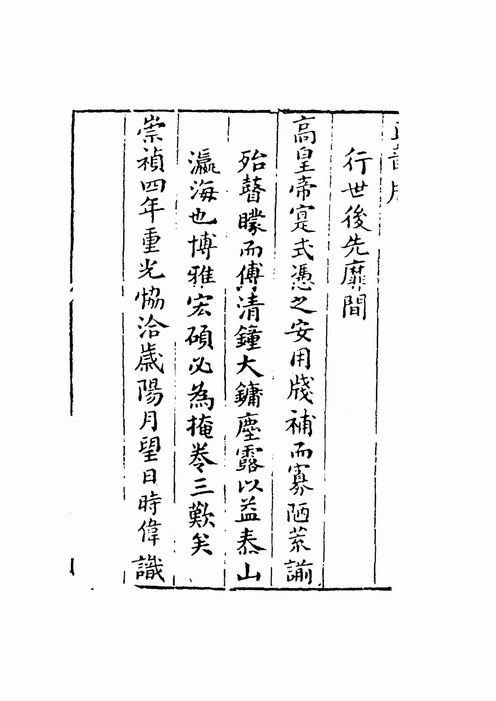 行世後先靡間
高皇帝寔式憑之安用牋補而寡陋
殆瞽矇而傅清鐘大鏞塵露以益泰山
瀛海也博雅宏碩必為掩卷三歎矣
崇禎四年重光恊洽歲陽月望日時偉識